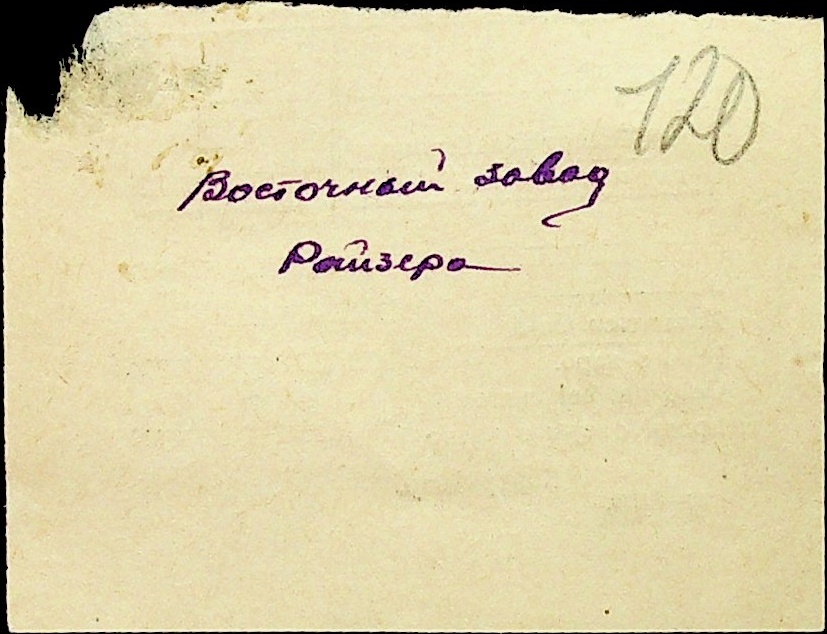 120
Восточный завод
Райзера